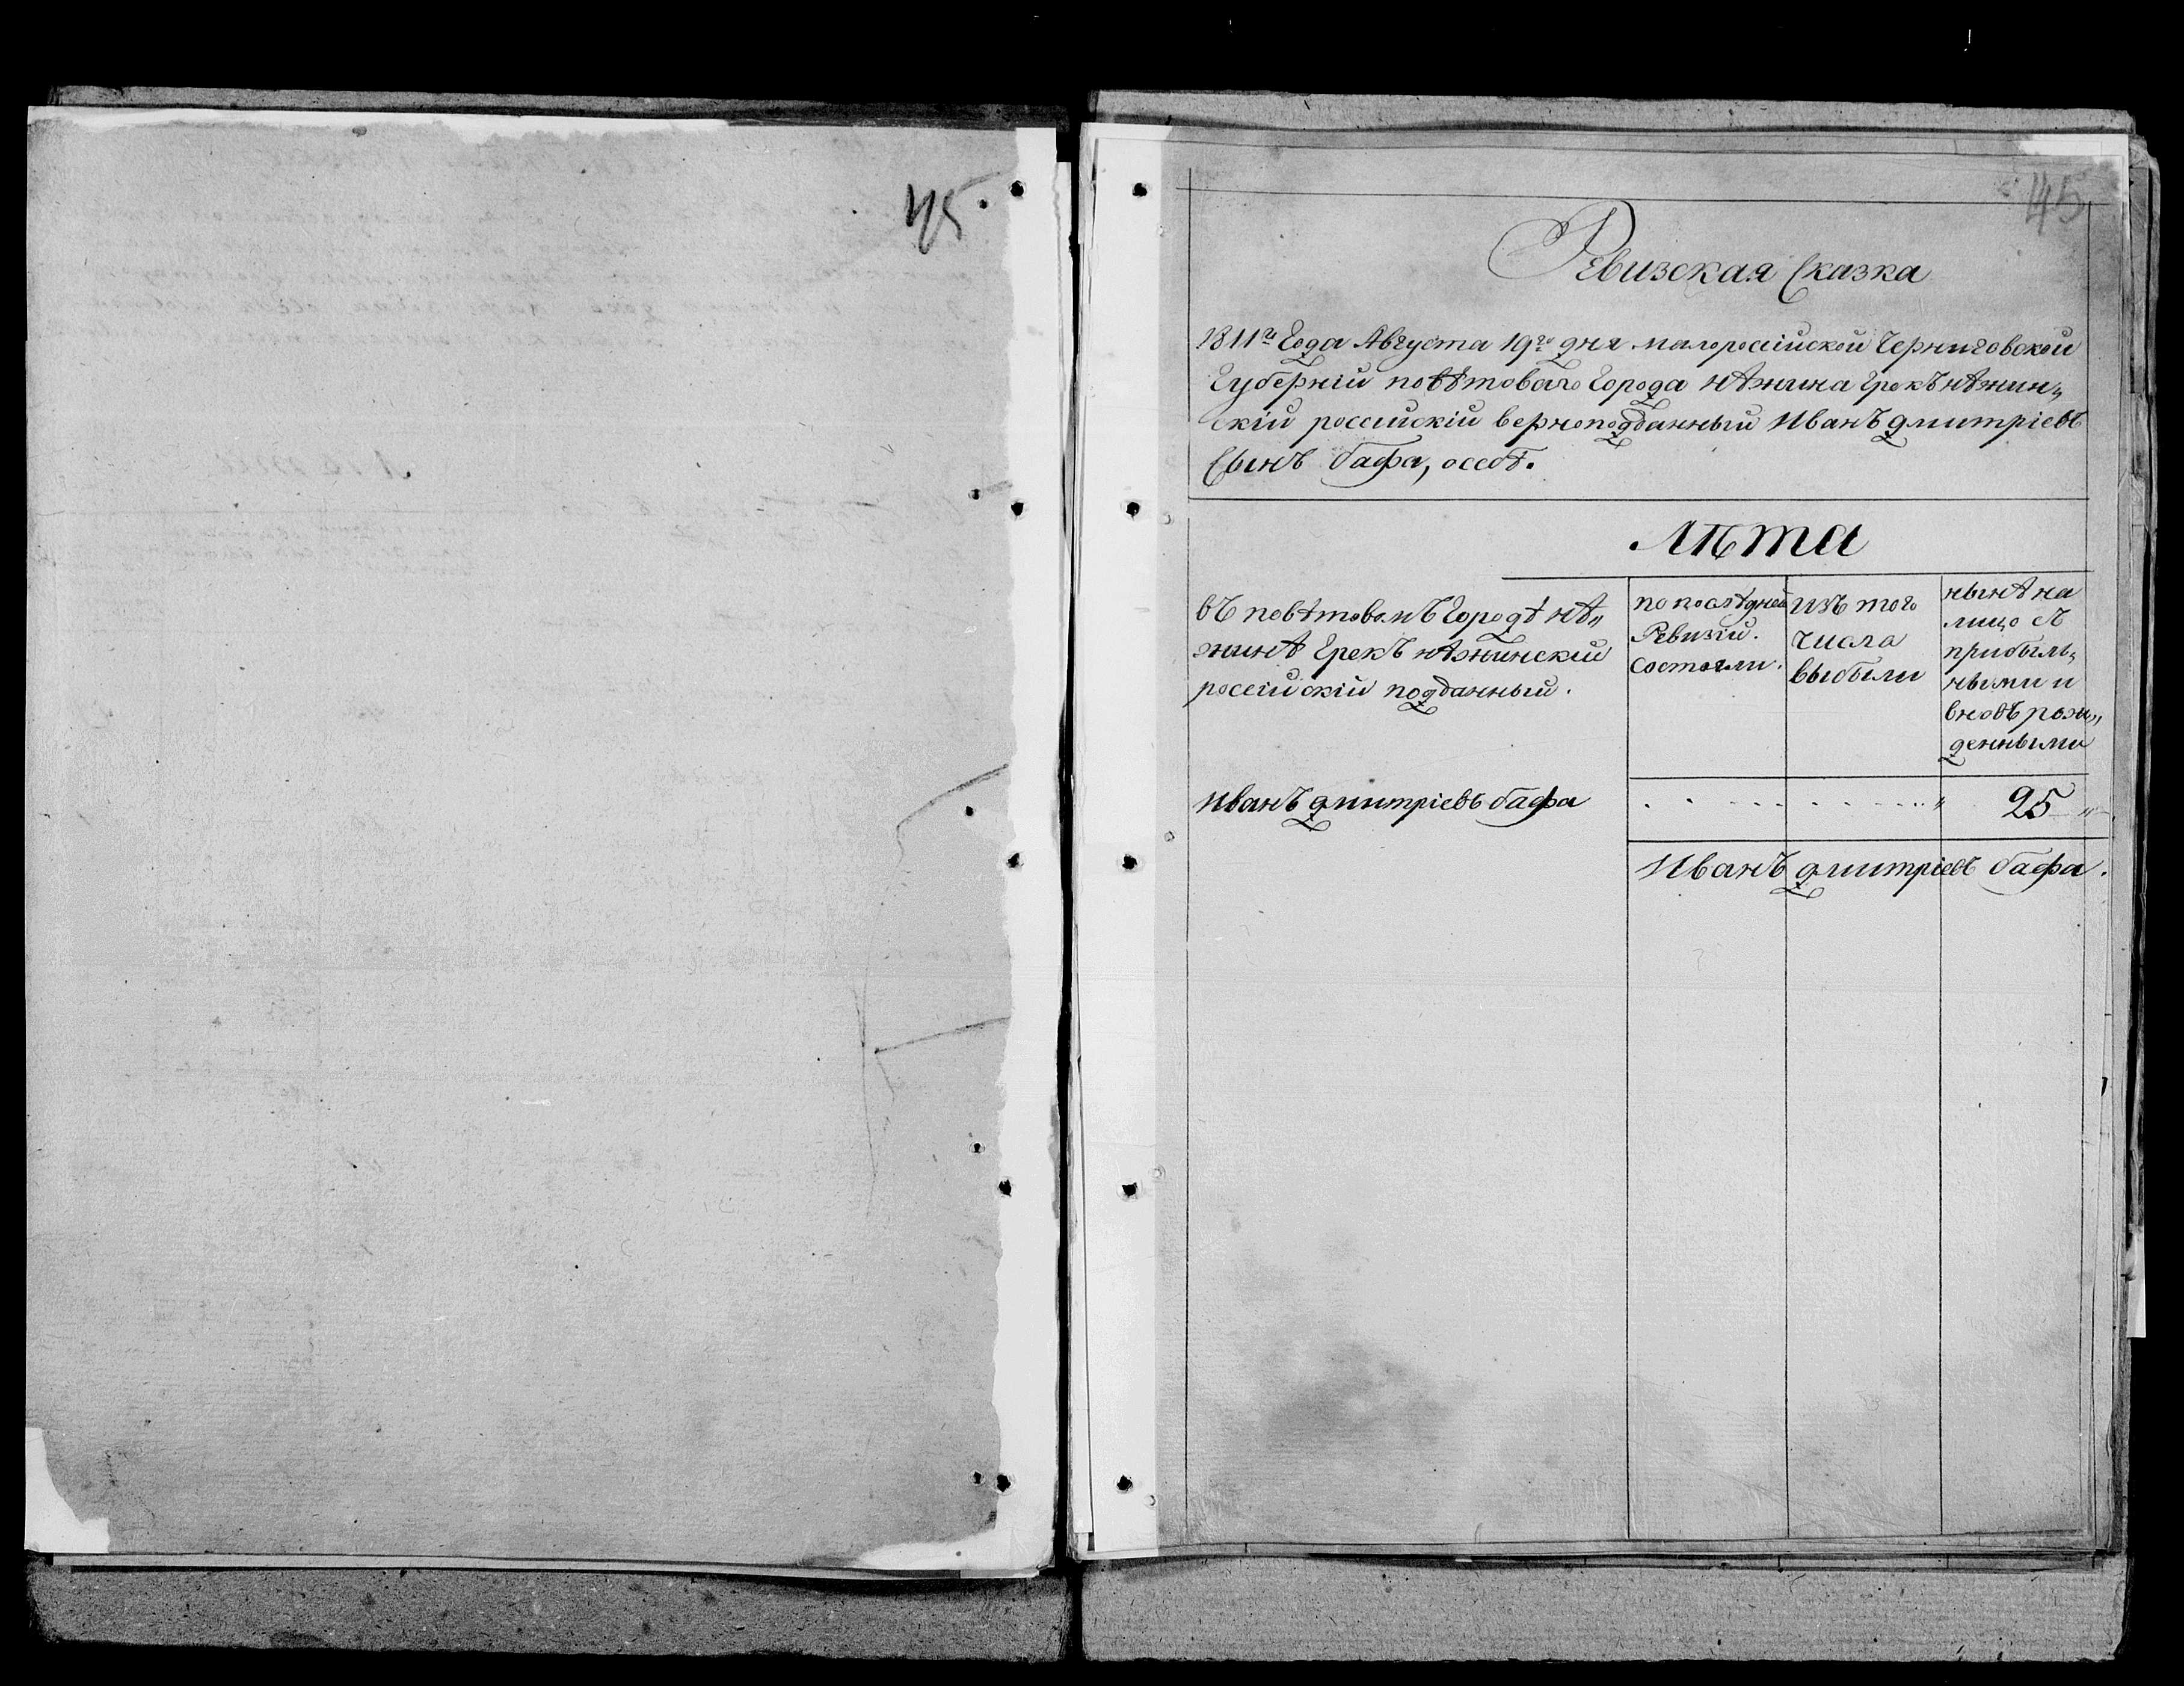 45.
45
Ревизская Сказка
1811го Года Августа 19го дня малороссійской Черниговской
Губерніи повѣтоваго Города нѣжина Грекъ нѣжин„
скій россійскій вѣрноподданный Иванъ дмитріевъ
Сынъ бафа, о себѣ.
Лѣта
въ повѣтовомъ Городѣ нѣ„
жинѣ Грекъ нѣжинскій
россійскій подданный.
по послѣдней
Ревизіи.
состояли.
изъ того
числа
выбыли
нынѣ на
лицо съ
прибыль„
ными и
вновь рож„
денными
Иванъ дмитріевъ бафа
25
Иванъ дмитріевъ бафа.